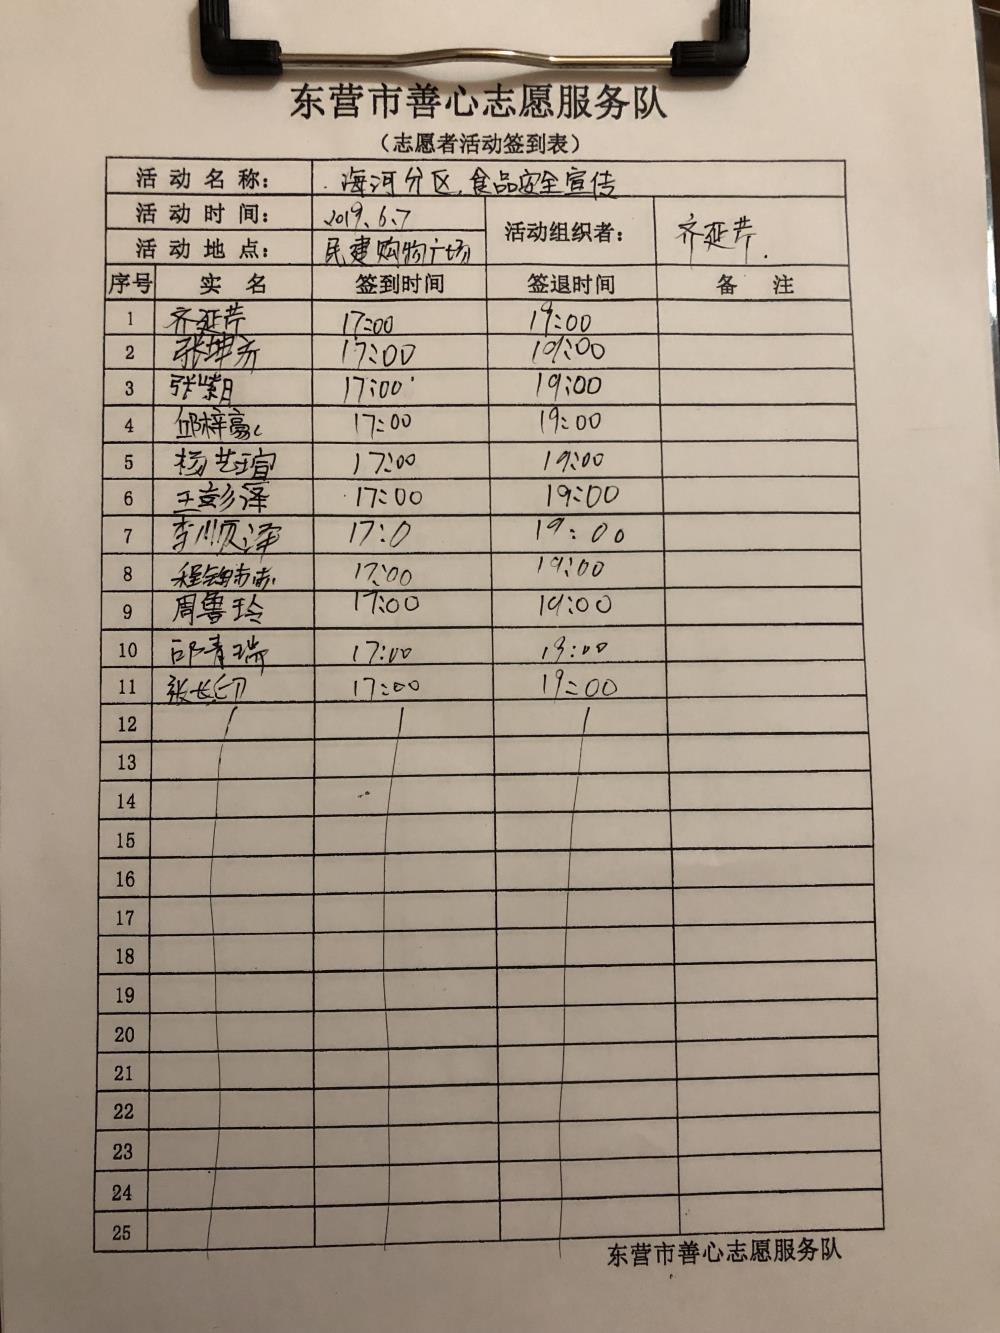 东营市善心志愿服务队
（志愿者活动签到表）
活动名称： 海河分区,食品安全宣传
活动时间： 2019.6.7 活动组织者： 齐延芹.
活动地点： 民建购物广场
序号 实名 签到时间 签退时间 备注
1 齐延芹 17:00 19:00
2 张坤芳 17:00 19:00
3 张紫月 17:00 19:00
4 邱梓豪 17:00 19:00
5 杨艺瑄 17:00 19:00
6 王彭泽 17:00 19:00
7 李顺泽 17:0 19:00
8 17:00 19:00
9 周鲁玲 17:00 19:00
10 邱青瑞 17:00 19:00
11 17:00 19:00
12
13
14
15
16
17
18
19
20
21
22
23
24
25
东营市善心志愿服务队